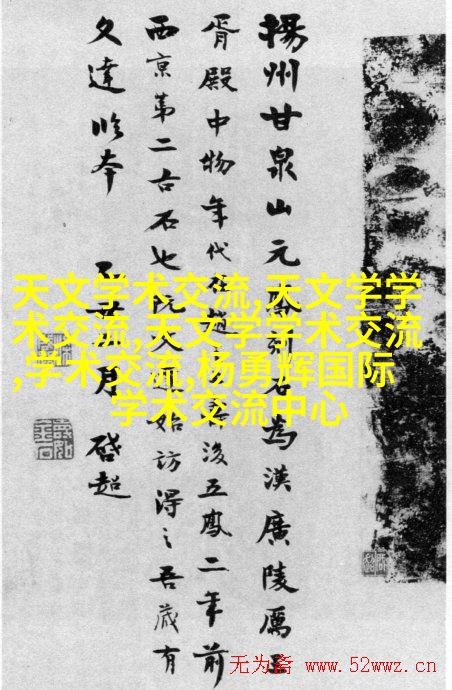 揚州甘泉山元鳳刻石為漢廣陵厲王
胥殿中物年代在趙後五鳳二年前
西京第二古石也阮始訪得之吾藏有
文達本 月 啓超
天文学术交流,天文学学
术交流,天文学学术交流
,学术交流,杨勇辉国际
学术交流中心
无为斋 www.52wwz.cn